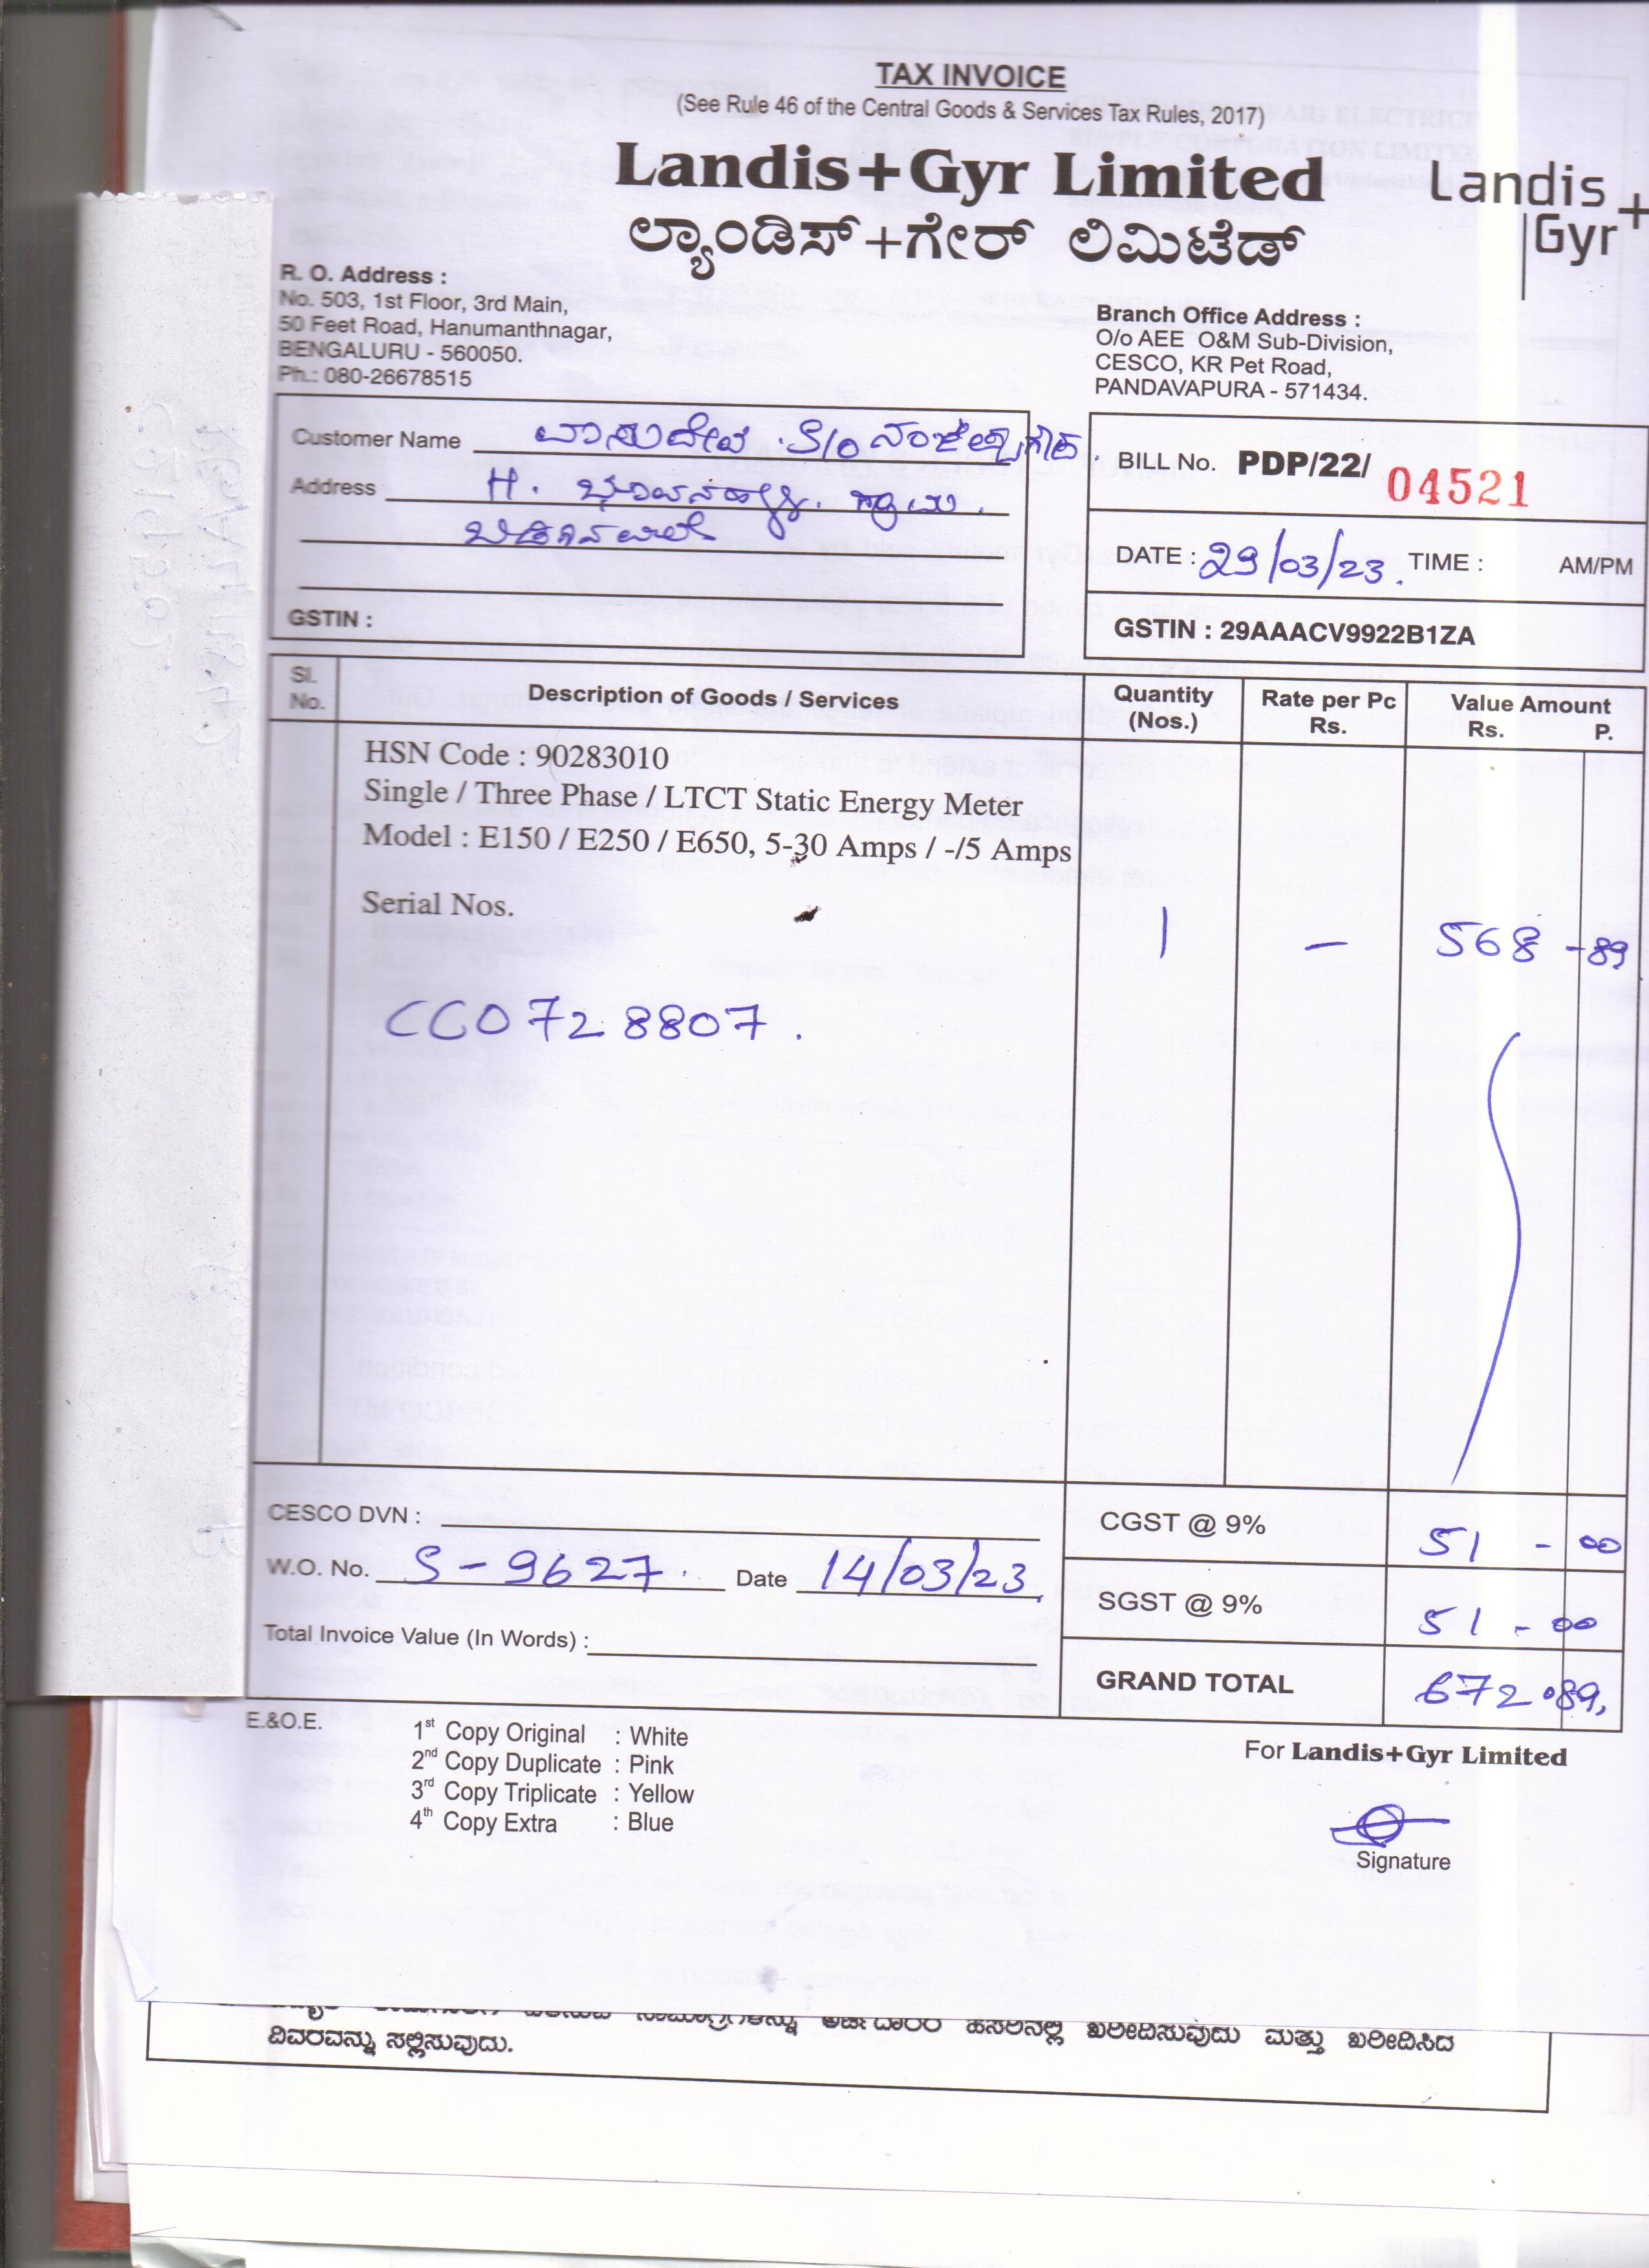 TAX INVOICE
(See Rule 46 of the Central Goods & Services Tax Rules, 2017)
Landis+Gyr Limited
ಲ್ಯಾಂಡಿಸ್+ಗೇರ್ ಲಿಮಿಟೆಡ್
Landis
Gyr+
R. O. Address :
No. 503, 1st Floor, 3rd Main,
50 Feet Road, Hanumanthnagar,
BENGALURU - 560050.
Ph.: 080-26678515
Branch Office Address :
O/o AEE O&M Sub-Division,
CESCO, KR Pet Road,
PANDAVAPURA - 571434.
Customer Name ವಾಸುದೇವ . S/o
Address H. ಗ್ರಾಮ .
GSTIN :
BILL No. PDP/22/ 04521
DATE : 29/03/23. TIME : AM/PM
GSTIN : 29AAACV9922B1ZA
Sl. No. Description of Goods / Services Quantity (Nos.) Rate per Pc Rs. Value Amount Rs. P.
HSN Code : 90283010
Single / Three Phase / LTCT Static Energy Meter
Model : E150 / E250 / E650, 5-30 Amps / -/5 Amps
Serial Nos.
1 — 568 - 89
CC0728807 .
CESCO DVN :
W.O. No. S - 9627 . Date 14/03/23
Total Invoice Value (In Words) :
CGST @ 9% 51 - 00
SGST @ 9% 51 - 00
GRAND TOTAL 672.89
E.&O.E.
1st Copy Original : White
2nd Copy Duplicate : Pink
3rd Copy Triplicate : Yellow
4th Copy Extra : Blue
For Landis+Gyr Limited
Signature
ಸಾಮಾಗ್ರಿಗಳನ್ನು ಅರ್ಜಿದಾರರ ಹೆಸರಿನಲ್ಲಿ ಖರೀದಿಸುವುದು ಮತ್ತು ಖರೀದಿಸಿದ
ವಿವರವನ್ನು ಸಲ್ಲಿಸುವುದು.